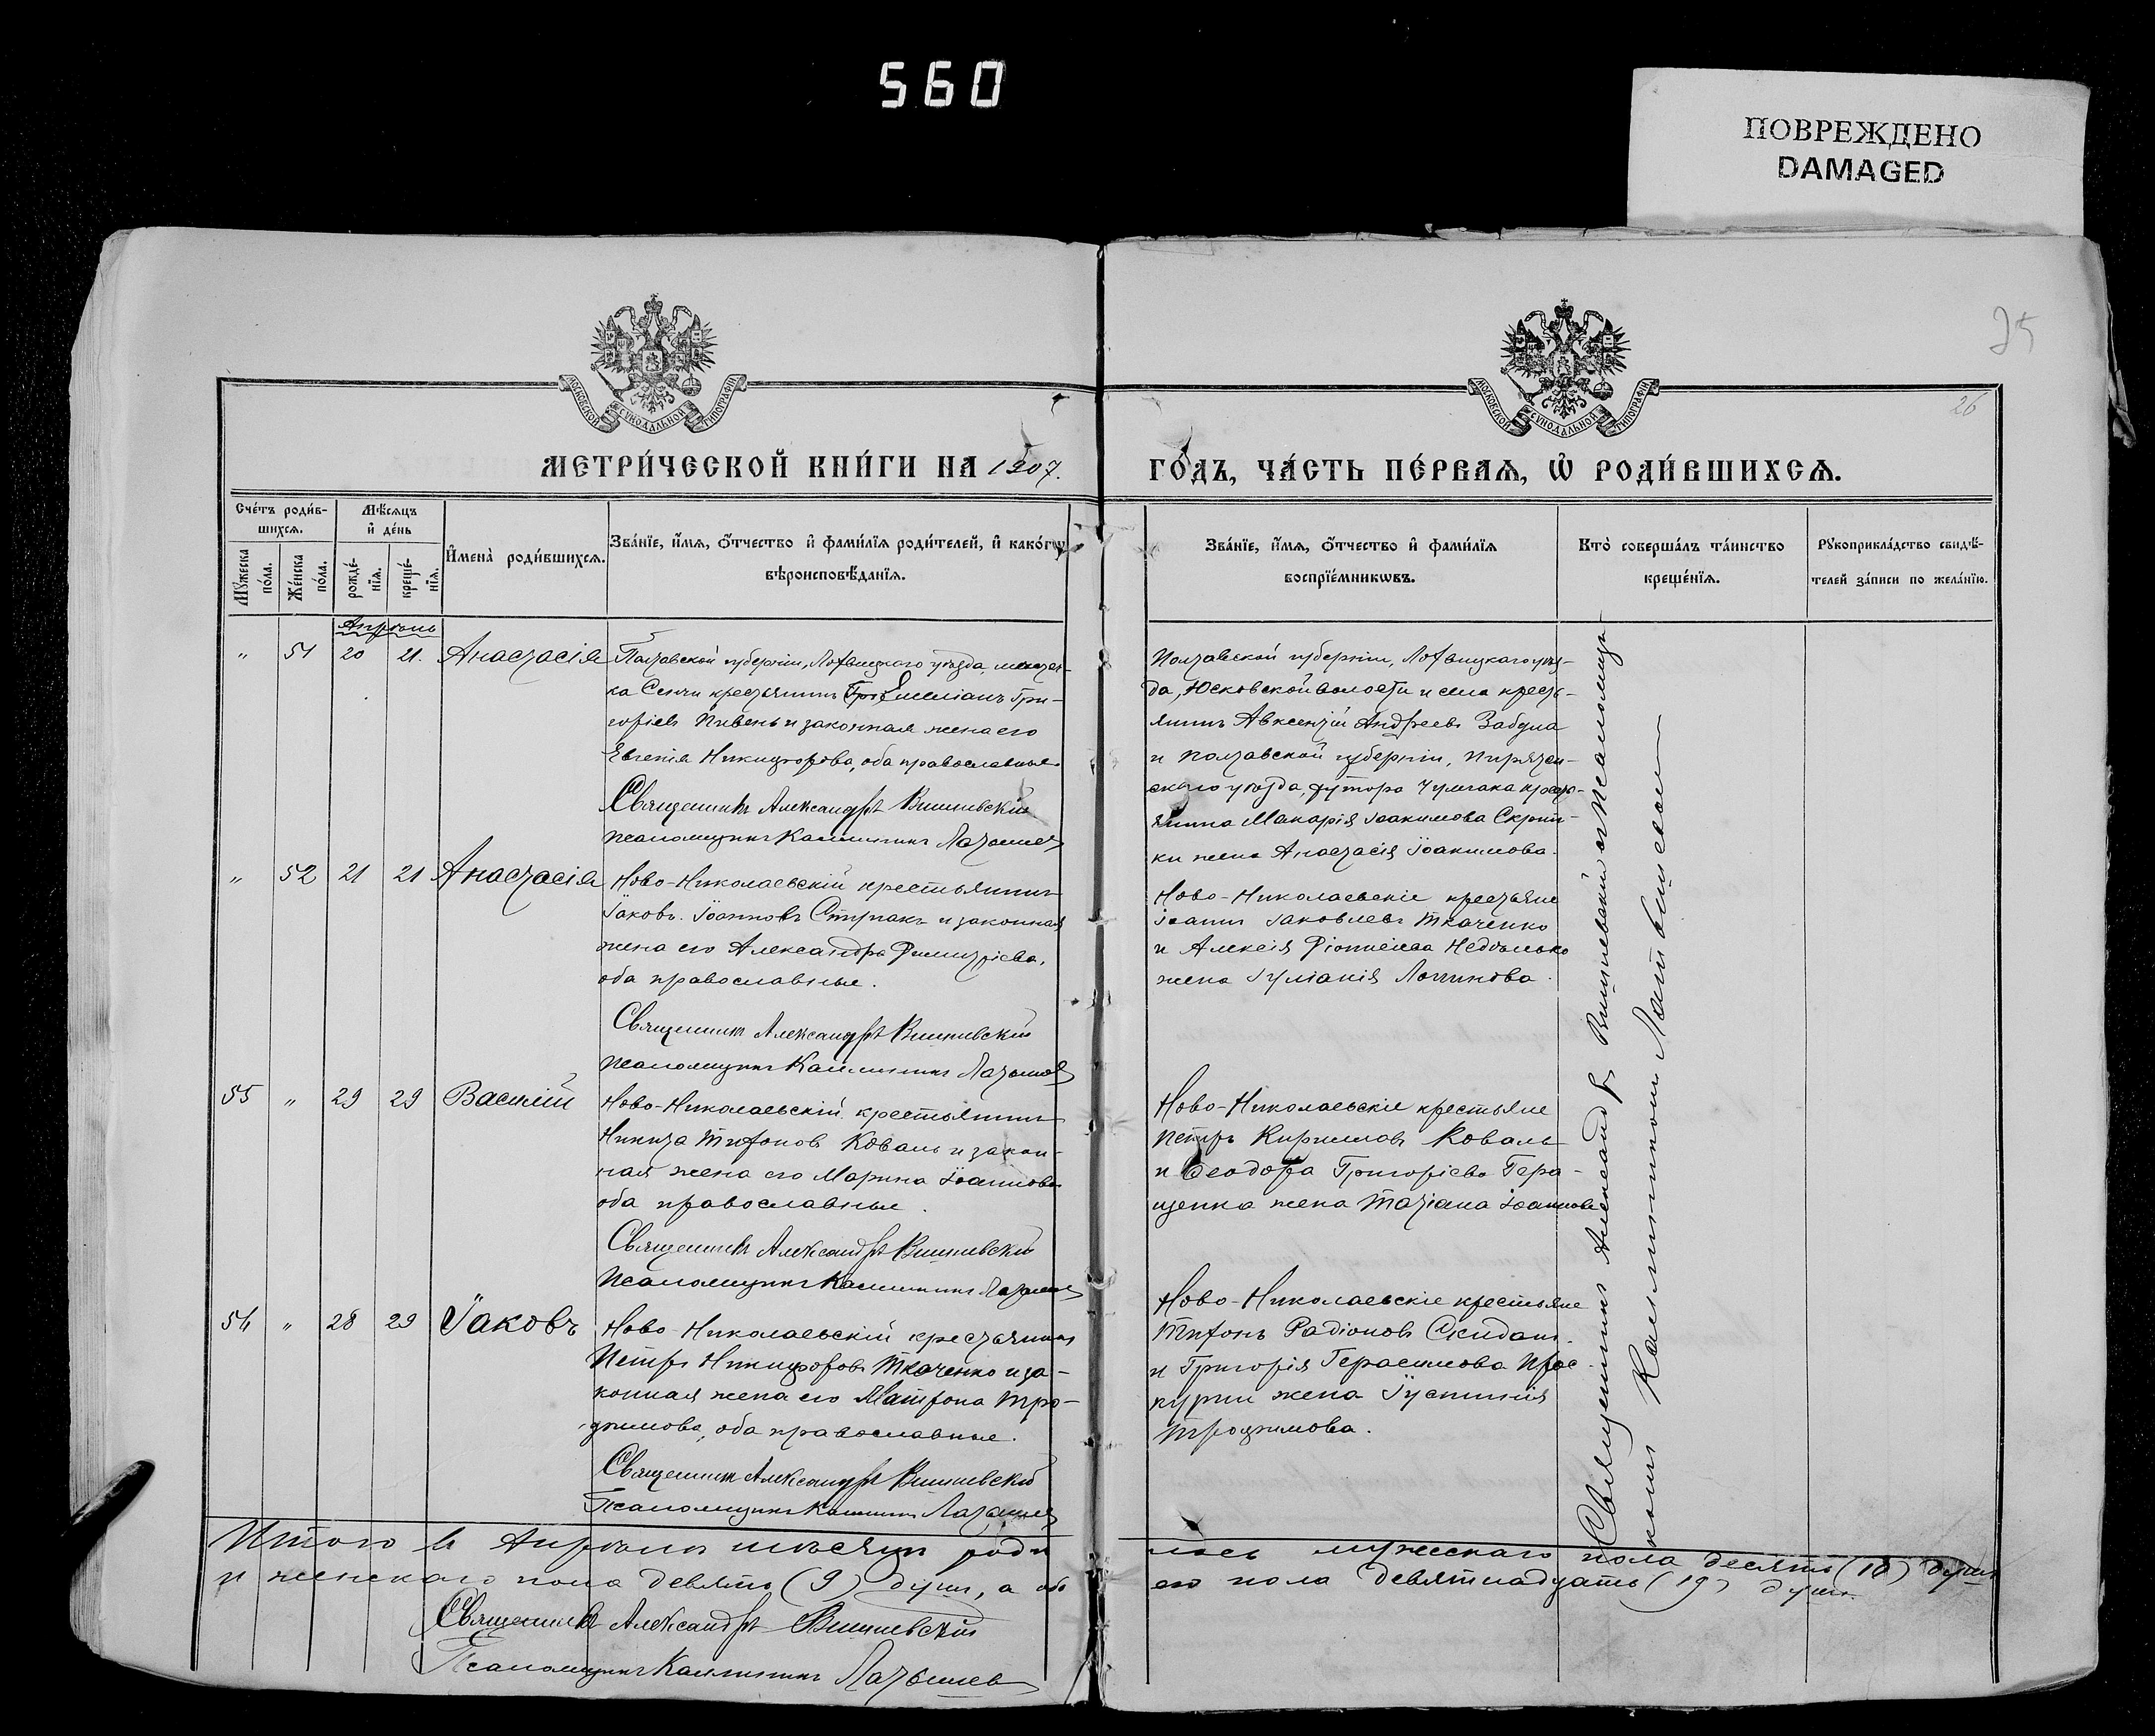 560
ПОВРЕЖДЕНО
DAMAGED
25
26
МОСКОВСКОЙ СѴНОДАЛЬНОЙ ТИПОГРАФІИ
МОСКОВСКОЙ СѴНОДАЛЬНОЙ ТИПОГРАФІИ
МЕТРИ́ЧЕСКОЙ КНИ́ГИ НА 1907.
ГО́ДЪ, ЧА́СТЬ ПЕ́РВАѦ, Ѡ҆ РОДИ́ВШИХСѦ.
Сче́тъ роди́в-
шихсѧ.
Мꙋ́жеска по́ла.
Же́нска по́ла.
Мѣ́сѧцъ
и҆ де́нь
рожде́-
нїѧ.
креще́-
нїѧ.
И҆мена̀ роди́вшихсѧ.
Зва́нїе, и҆́мѧ, ѻ҆́тчество и҆ фами́лїѧ роди́телей, и҆ како́гѡ
вѣроисповѣ́данїѧ.
Зва́нїе, и҆́мѧ, ѻ҆́тчество и҆ фами́лїѧ
воспрїе́мникѡвъ.
Кто̀ соверша́лъ та́инство
креще́нїѧ.
Рꙋкоприкла́дство свидѣ́-
телей за́писи по жела́нїю.
Апрѣль
" 51 20 21. Анастасія
Полтавской губерніи, Лохвицкаго уѣзда, мѣстеч-
ка Сенчи крестьянинъ Емеліанъ Гри-
горіевъ Пивень и законная жена его
Евгенія Никифорова, оба православные.
Священникъ Александръ Вишневскій
Псаломщикъ Каллиникъ Латышевъ
Полтавской губерніи, Лохвицкаго уѣз-
да, Юсковской волости и села кресть-
янинъ Авксентій Андреевъ Забула
и Полтавской губерніи, Пирятин-
скаго уѣзда, хутора Чумгака кресть-
янина Макарія Іоакимова Скрип-
ки жена Анастасія Іоакимова.
" 52 21 21 Анастасія
Ново-Николаевскій крестьянинъ
Іаковъ Іоанновъ Ступакъ и законная
жена его Александра Димитріева,
оба православные.
Священникъ Александръ Вишневскій
Псаломщикъ Каллиникъ Латышевъ
Ново-Николаевскіе крестьяне
Іоаннъ Іаковлевъ Ткаченко
и Алексія
жена Іуліанія Логинова.
55 " 29 29 Василій
Ново-Николаевскій крестьянинъ
Никита Тихоновъ Коваль и закон-
ная жена его Марина Іоаннова
оба православные.
Священникъ Александръ Вишневскій
Псаломщикъ Каллиникъ Латышевъ
Ново-Николаевскіе крестьяне
Петръ Кирилловъ Коваль
и Ѳеодора Григоріева Гера-
щенка жена Татіана Іоаннова
56 " 28 29 Іаковъ
Ново-Николаевскій крестьянинъ
Петръ Никифоровъ Ткаченко и за-
конная жена его Матрона Тро-
фимова, оба православные.
Священникъ Александръ Вишневскій
Псаломщикъ Каллиникъ Латышевъ
Ново-Николаевскіе крестьяне
Тихонъ Радіоновъ Скидан
и Григорія Герасимова Прос-
курни жена Іустинія
Трофимова.
Священникъ Александръ Вишневскій съ Псаломщи-
комъ Каллиникомъ Латышевымъ
Итого въ Апрѣлѣ мѣсяцѣ роди лось мужескаго пола десять (10) душъ
и женскаго пола девять (9) душъ, а обо его пола девятнадцать (19) душъ.
Священникъ Александръ Вишневскій
Псаломщикъ Каллиникъ Латышевъ